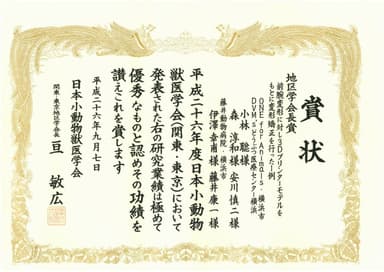 賞状
地区学会長賞
前腕変形に対し3Dプリンターモデルを
もとに変形矯正を行った一例
ONE for Animals・横浜市
DVMsどうぶつ医療センター横浜
小林 聡様
森 淳和様 安川慎二様
藤井動物病院・横浜市
伊澤幸甫様 藤井康一様
平成二十六年度日本小動物
獣医学会(関東・東京)において
発表された右の研究業績は極めて
優秀なものと認めその功績を
讃えこれを賞します
平成二十六年九月七日
日本小動物獣医学会
関東・東京地区学会長
亘 敏広